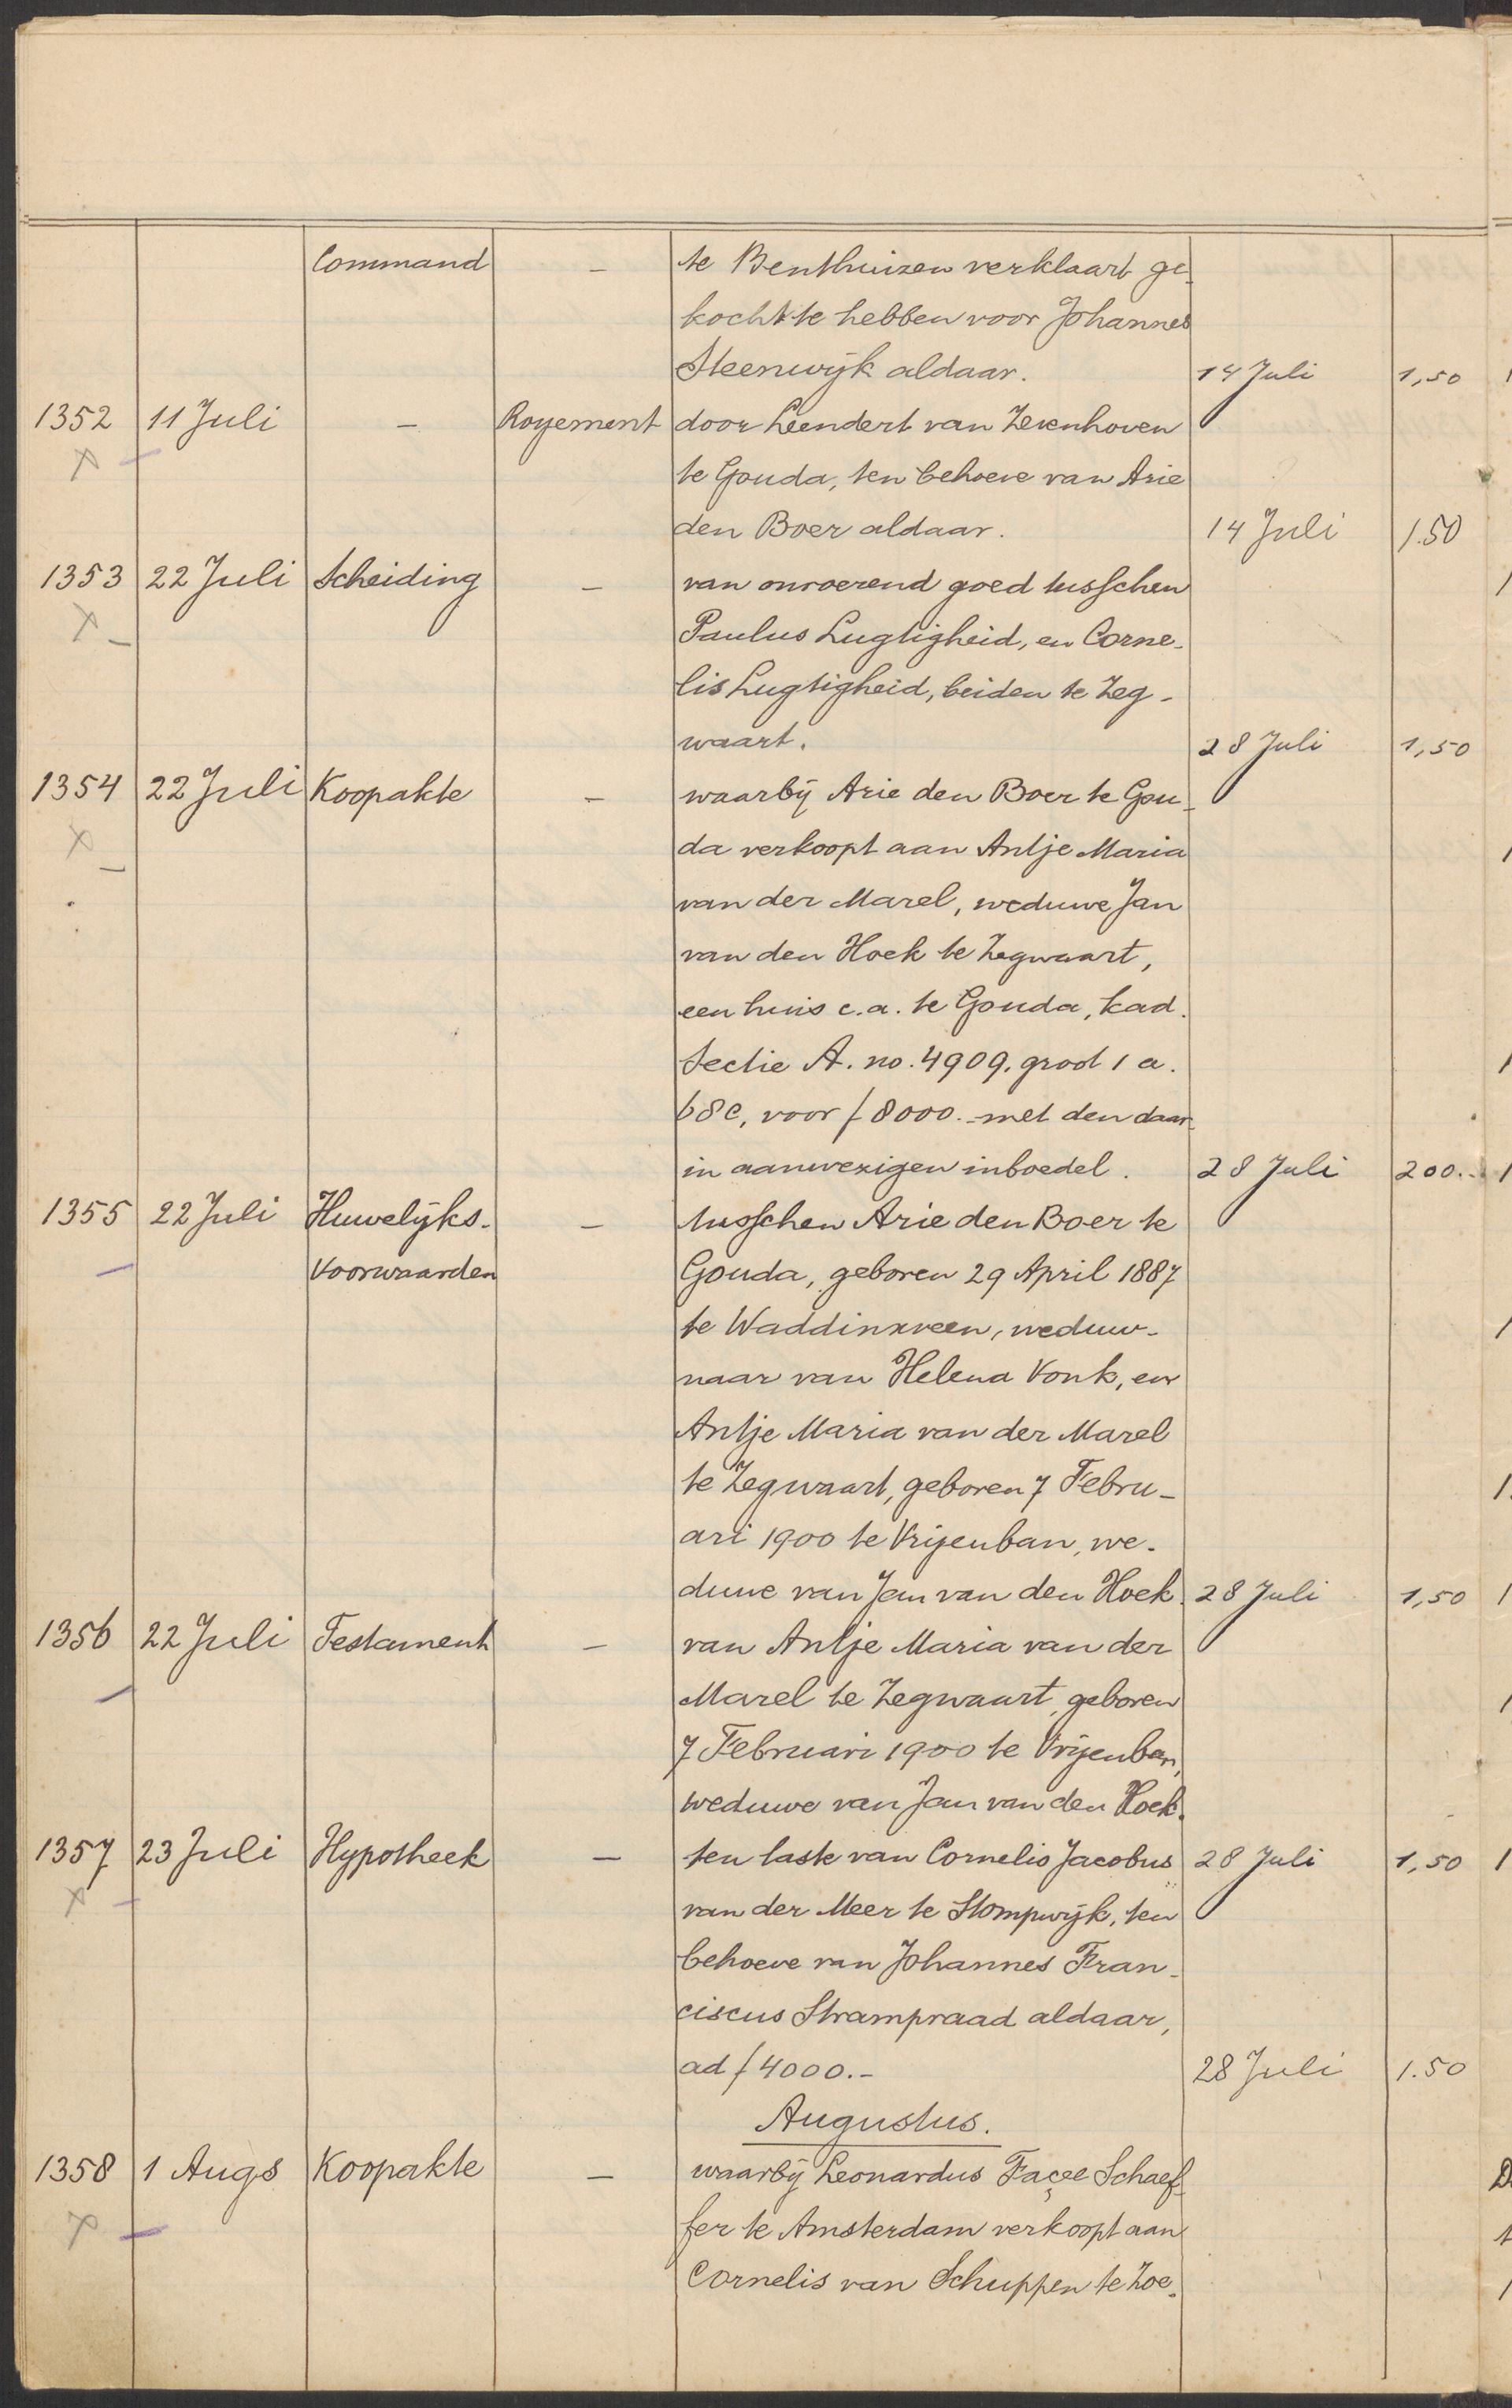 Command - te Benthuizen verklaart ge-
kocht te hebben voor Johannes
Steenwijk aldaar. 14 Juli 1,50
1352 11 Juli - Royement door Leendert van Zevenhoven
te Gouda, ten behoeve van Arie
den Boer aldaar. 14 Juli 1.50
1353 22 Juli Scheiding - van onroerend goed tusschen
Paulus Lugtigheid, en Corne-
lis Lugtigheid, beiden te Zeg-
waart. 28 Juli 1,50
1354 22 Juli Koopakte - waarbij Arie den Boer te Gou-
da verkoopt aan Antje Maria
van der Marel, weduwe Jan
van den Hoek te Zegwaart,
een huis c.a. te Gouda, kad.
sectie A. no. 4909. groot 1 a.
68 c, voor f 8000.- met den daar-
in aanwezigen inboedel. 28 Juli 200.-
1355 22 Juli Huwelijks- - tusschen Arie den Boer te
Voorwaarden Gouda, geboren 29 April 1887
te Waddinxveen, weduw-
naar van Helena Vonk, en
Antje Maria van der Marel
te Zegwaart, geboren 7 Febru-
ari 1900 te Vrijenban, we-
duwe van Jan van den Hoek. 28 Juli 1,50
1356 22 Juli Testament - van Antje Maria van der
Marel te Zegwaart, geboren
7 Februari 1900 te Vrijenban,
weduwe van Jan van den Hoek.
1357 23 Juli Hypotheek - ten laste van Cornelis Jacobus 28 Juli 1,50
van der Meer te Stompwijk, ten
behoeve van Johannes Fran-
ciscus Strampraad aldaar,
ad f 4000.- 28 Juli 1.50
Augustus.
1358 1 Augs Koopakte - waarbij Leonardus Façee Schaef-
fer te Amsterdam verkoopt aan
Cornelis van Schuppen te Zoe-